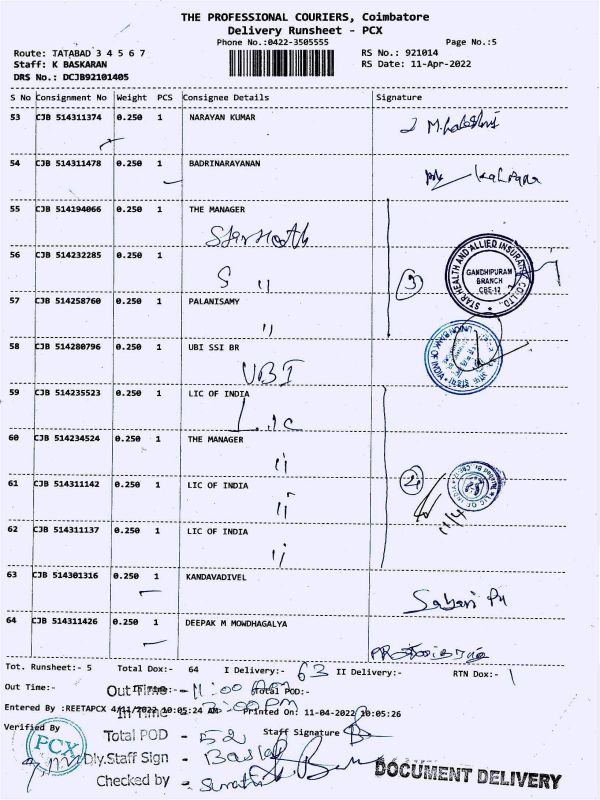 THE PROFESSIONAL COURIERS, Coimbatore
Delivery Runsheet - PCX
Phone No.:0422-3505555 Page No.:5
Route: TATABAD 3 4 5 6 7 RS No.: 921014
Staff: K BASKARAN RS Date: 11-Apr-2022
DRS No.: DCJB92101405
S No Consignment No Weight PCS Consignee Details Signature
53 CJB 514311374 0.250 1 NARAYAN KUMAR
54 CJB 514311478 0.250 1 BADRINARAYANAN
55 CJB 514194066 0.250 1 THE MANAGER
56 CJB 514232285 0.250 1
STAR HEALTH AND ALLIED INSURANCE CO.LTD.,
GANDHIPURAM
BRANCH
CBE-12
57 CJB 514258760 0.250 1 PALANISAMY
58 CJB 514280796 0.250 1 UBI SSI BR
UBI
UNION BANK OF INDIA
59 CJB 514235523 0.250 1 LIC OF INDIA
L.I.C
60 CJB 514234524 0.250 1 THE MANAGER
61 CJB 514311142 0.250 1 LIC OF INDIA
LIC OF INDIA
62 CJB 514311137 0.250 1 LIC OF INDIA
11/4
63 CJB 514301316 0.250 1 KANDAVADIVEL
64 CJB 514311426 0.250 1 DEEPAK M MOWDHAGALYA
Tot. Runsheet:- 5 Total Dox:- 64 I Delivery:- 63 II Delivery:- RTN Dox:- 1
Out Time:- Out Time:- 11:00 AM Total POD:-
Entered By :REETAPCX 4/11/2022 10:05:24 AM Printed On: 11-04-2022 10:05:26
In Time
Verified By Total POD - 52 Staff Signature
PCX
Dly.Staff Sign -
Checked by - DOCUMENT DELIVERY